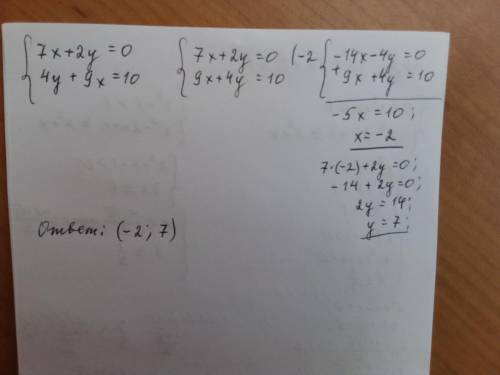 7x+2y=0
4y+9x=10
7x+2y=0 (-2
9x+4y=10
-14x-4y=0
+9x+4y=10
-5x=10;
x=-2
7·(-2)+2y=0;
-14+2y=0;
2y=14;
y=7;
Ответ: (-2; 7)